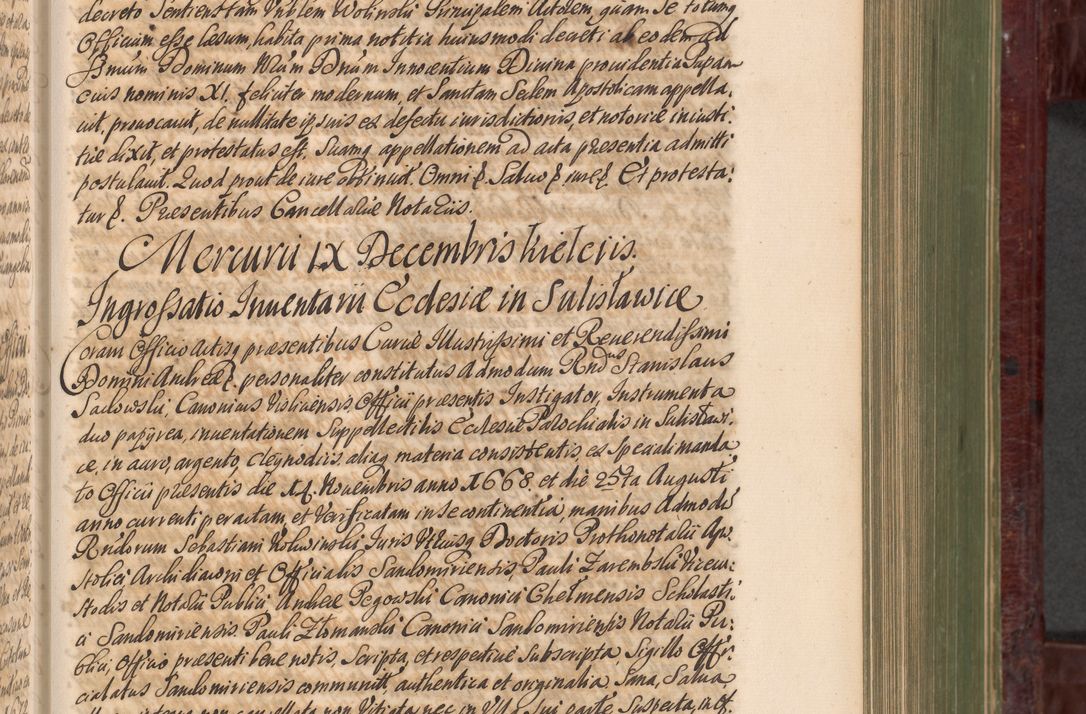 decreto Sentiens tam Vnblem Wolinski Principalem Actorem, quam se totumq
Officium esse læsum, habita prima notitia huiusmodi decreti ab eodem ad
Ssmum Dominum Nrum Dnum Innocentium Divina providentia Papam
eius nominis XI. feliciter modernum, et Sanctam Sedem Apostolicam appella,
vit, provocavit, de nullitate ipsius ex defectu iurisdictionis, et notoriæ iniusti:
tiæ dixit, et protestatus est, Suamq appellationem ad acta præsentia admitti
postulavit. Quod prout de iure obtinuit. Omni &. Salvo &. iure &. Et protesta:
tur &. Præsentibus Cancellariæ Notariis.
Mercurii IX Decembris Kielciis.
Ingrossatio Inventarii Ecclesiæ in Sulisławice
Coram Officio Actisq præsentibus Curiæ Illustrissimi et Reverendissimi
Domini Andreæ &. personaliter constitutus Admodum Rndus Stanislaus
Sadowski, Canonicus Visliciensis, Officii præsentis Instigator, Instrumenta
duo papyrea, inventationem Suppellectilis Ecclesiæ Parochialis in Sulisławi:
ce, in auro, argento, cleynodiis, aliaq materia consistentis, ex Speciali manda
to Officii præsentis die 14. Novembris anno 1668. et die 25ta Augusti
anno currenti peractam, et Verificatam in se continentia, manibus Admodum
Rndorum Sebastiani Wolwinski Juris Vtriusq Doctoris Prothonotarii Apo
stolici Archidiaconi et Officialis Sandomiriensis, Pauli Zarembski Vicecu:
stodis et Notarii Publici, Andreæ Pegowski Canonici Chelmensis Scholasti:
ci Sandomiriensis. Pauli Złomanski Canonici Sandomiriensis Notarii Pu:
blici, Officio præsenti bene notis, Scripta, et respective Subscripta, Sigillo Offi:
cialatus Sandomiriensis communita, authentica et originalia Sana, Salva